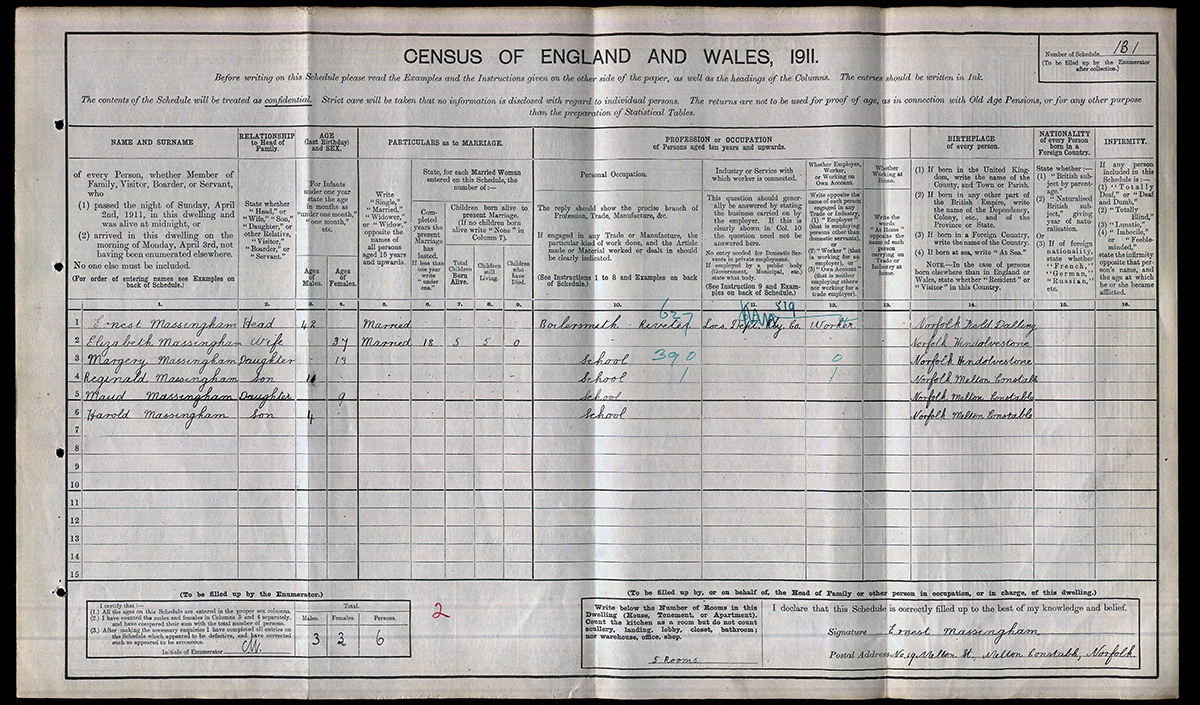 CENSUS OF ENGLAND AND WALES, 1911.
Number of Schedule 131
(To be filled up by the Enumerator after collection.)
Before writing on this Schedule please read the Examples and the Instructions given on the other side of the paper, as well as the headings of the Columns. The entries should be written in Ink.
The contents of the Schedule will be treated as confidential. Strict care will be taken that no information is disclosed with regard to individual persons. The returns are not to be used for proof of age, as in connection with Old Age Pensions, or for any other purpose
than the preparation of Statistical Tables.
NAME AND SURNAME
of every Person, whether Member of
Family, Visitor, Boarder, or Servant,
who
(1) passed the night of Sunday, April
2nd, 1911, in this dwelling and
was alive at midnight, or
(2) arrived in this dwelling on the
morning of Monday, April 3rd, not
having been enumerated elsewhere.
No one else must be included.
(For order of entering names see Examples on
back of Schedule.)
RELATIONSHIP
to Head of
Family.
State whether
"Head," or
"Wife," "Son,"
"Daughter," or
other Relative,
"Visitor,"
"Boarder," or
"Servant."
AGE
(last Birthday)
and SEX.
For Infants
under one year
state the age
in months as
"under one month,"
"one month,"
etc.
Ages
of
Males.
Ages
of
Females.
PARTICULARS as to MARRIAGE.
Write
"Single,"
"Married,"
"Widower,"
or "Widow,"
opposite the
names of
all persons
aged 15 years
and upwards.
State, for each Married Woman
entered on this Schedule, the
number of:—
Completed
years the
present
Marriage
has
lasted.
If less than
one year
write
"under one."
Children born alive to
present Marriage.
(If no children born
alive write "None" in
Column 7).
Total
Children
Born
Alive.
Children
still
Living.
Children
who
have
Died.
PROFESSION or OCCUPATION
of Persons aged ten years and upwards.
Personal Occupation.
The reply should show the precise branch of
Profession, Trade, Manufacture, &c.
If engaged in any Trade or Manufacture, the
particular kind of work done, and the Article
made or Material worked or dealt in should
be clearly indicated.
(See Instructions 1 to 8 and Examples on back
of Schedule.)
Industry or Service with
which worker is connected.
This question should gener-
ally be answered by stating
the business carried on by
the employer. If this is
clearly shown in Col. 10
the question need not be
answered here.
No entry needed for Domestic Ser-
vants in private employment.
If employed by a public body
(Government, Municipal, etc.)
state what body.
(See Instruction 9 and Exam-
ples on back of Schedule.)
Whether Employer,
Worker,
or Working on
Own Account.
Write opposite the
name of each person
engaged in any
Trade or Industry,
(1) "Employer"
(that is employing
persons other than
domestic servants),
or
(2) "Worker" (that
is working for an
employer), or
(3) "Own Account"
(that is neither
employing others
nor working for a
trade employer).
Whether
Working at
Home.
Write the
words
"At Home"
opposite the
name of each
person
carrying on
Trade or
Industry at
home.
BIRTHPLACE
of every person.
(1) If born in the United King-
dom, write the name of the
County, and Town or Parish.
(2) If born in any other part of
the British Empire, write
the name of the Dependency,
Colony, etc., and of the
Province or State.
(3) If born in a Foreign Country,
write the name of the Country.
(4) If born at sea, write "At Sea."
NOTE.—In the case of persons
born elsewhere than in England or
Wales, state whether "Resident" or
"Visitor" in this Country.
NATIONALITY
of every Person
born in a
Foreign Country.
State whether:—
(1) "British sub-
ject by parent-
age."
(2) "Naturalised
British sub-
ject," giving
year of natu-
ralisation.
Or
(3) If of foreign
nationality,
state whether
"French,"
"German,"
"Russian,"
etc.
INFIRMITY.
If any person
included in this
Schedule is:—
(1) "Totally
Deaf," or "Deaf
and Dumb,"
(2) "Totally
Blind,"
(3) "Lunatic,"
(4) "Imbecile,"
or "Feeble-
minded,"
state the infirmity
opposite that per-
son's name, and
the age at which
he or she became
afflicted.
1. 2. 3. 4. 5. 6. 7. 8. 9. 10. 11. 12. 13. 14. 15. 16.
627 519
1 Ernest Massingham Head 42 Married Boilersmith Riveter Loco. Dept. Rly. Co. Worker Norfolk Field Dalling
2 Elizabeth Massingham Wife 37 Married 18 5 5 0 Norfolk Hindolvestone
3 Margery Massingham Daughter 13 School 390 0 Norfolk Hindolvestone
4 Reginald Massingham Son School 1 1 Norfolk Melton Constable
5 Maud Massingham Daughter 9 School Norfolk Melton Constable
6 Harold Massingham Son 4 School Norfolk Melton Constable
7
8
9
10
11
12
13
14
15
(To be filled up by the Enumerator.)
I certify that:—
(1.) All the ages on this Schedule are entered in the proper sex columns.
(2.) I have counted the males and females in Columns 3 and 4 separately,
and have compared their sum with the total number of persons.
(3.) After making the necessary enquiries I have completed all entries on
the Schedule which appeared to be defective, and have corrected
such as appeared to be erroneous.
Initials of Enumerator
Total.
Males. Females. Persons.
3 3 6
2
(To be filled up by, or on behalf of, the Head of Family or other person in occupation, or in charge, of this dwelling.)
Write below the Number of Rooms in this
Dwelling (House, Tenement, or Apartment).
Count the kitchen as a room but do not count
scullery, landing, lobby, closet, bathroom;
nor warehouse, office, shop.
5 Rooms
I declare that this Schedule is correctly filled up to the best of my knowledge and belief.
Signature Ernest Massingham
Postal Address No. 19 Melton St, Melton Constable, Norfolk